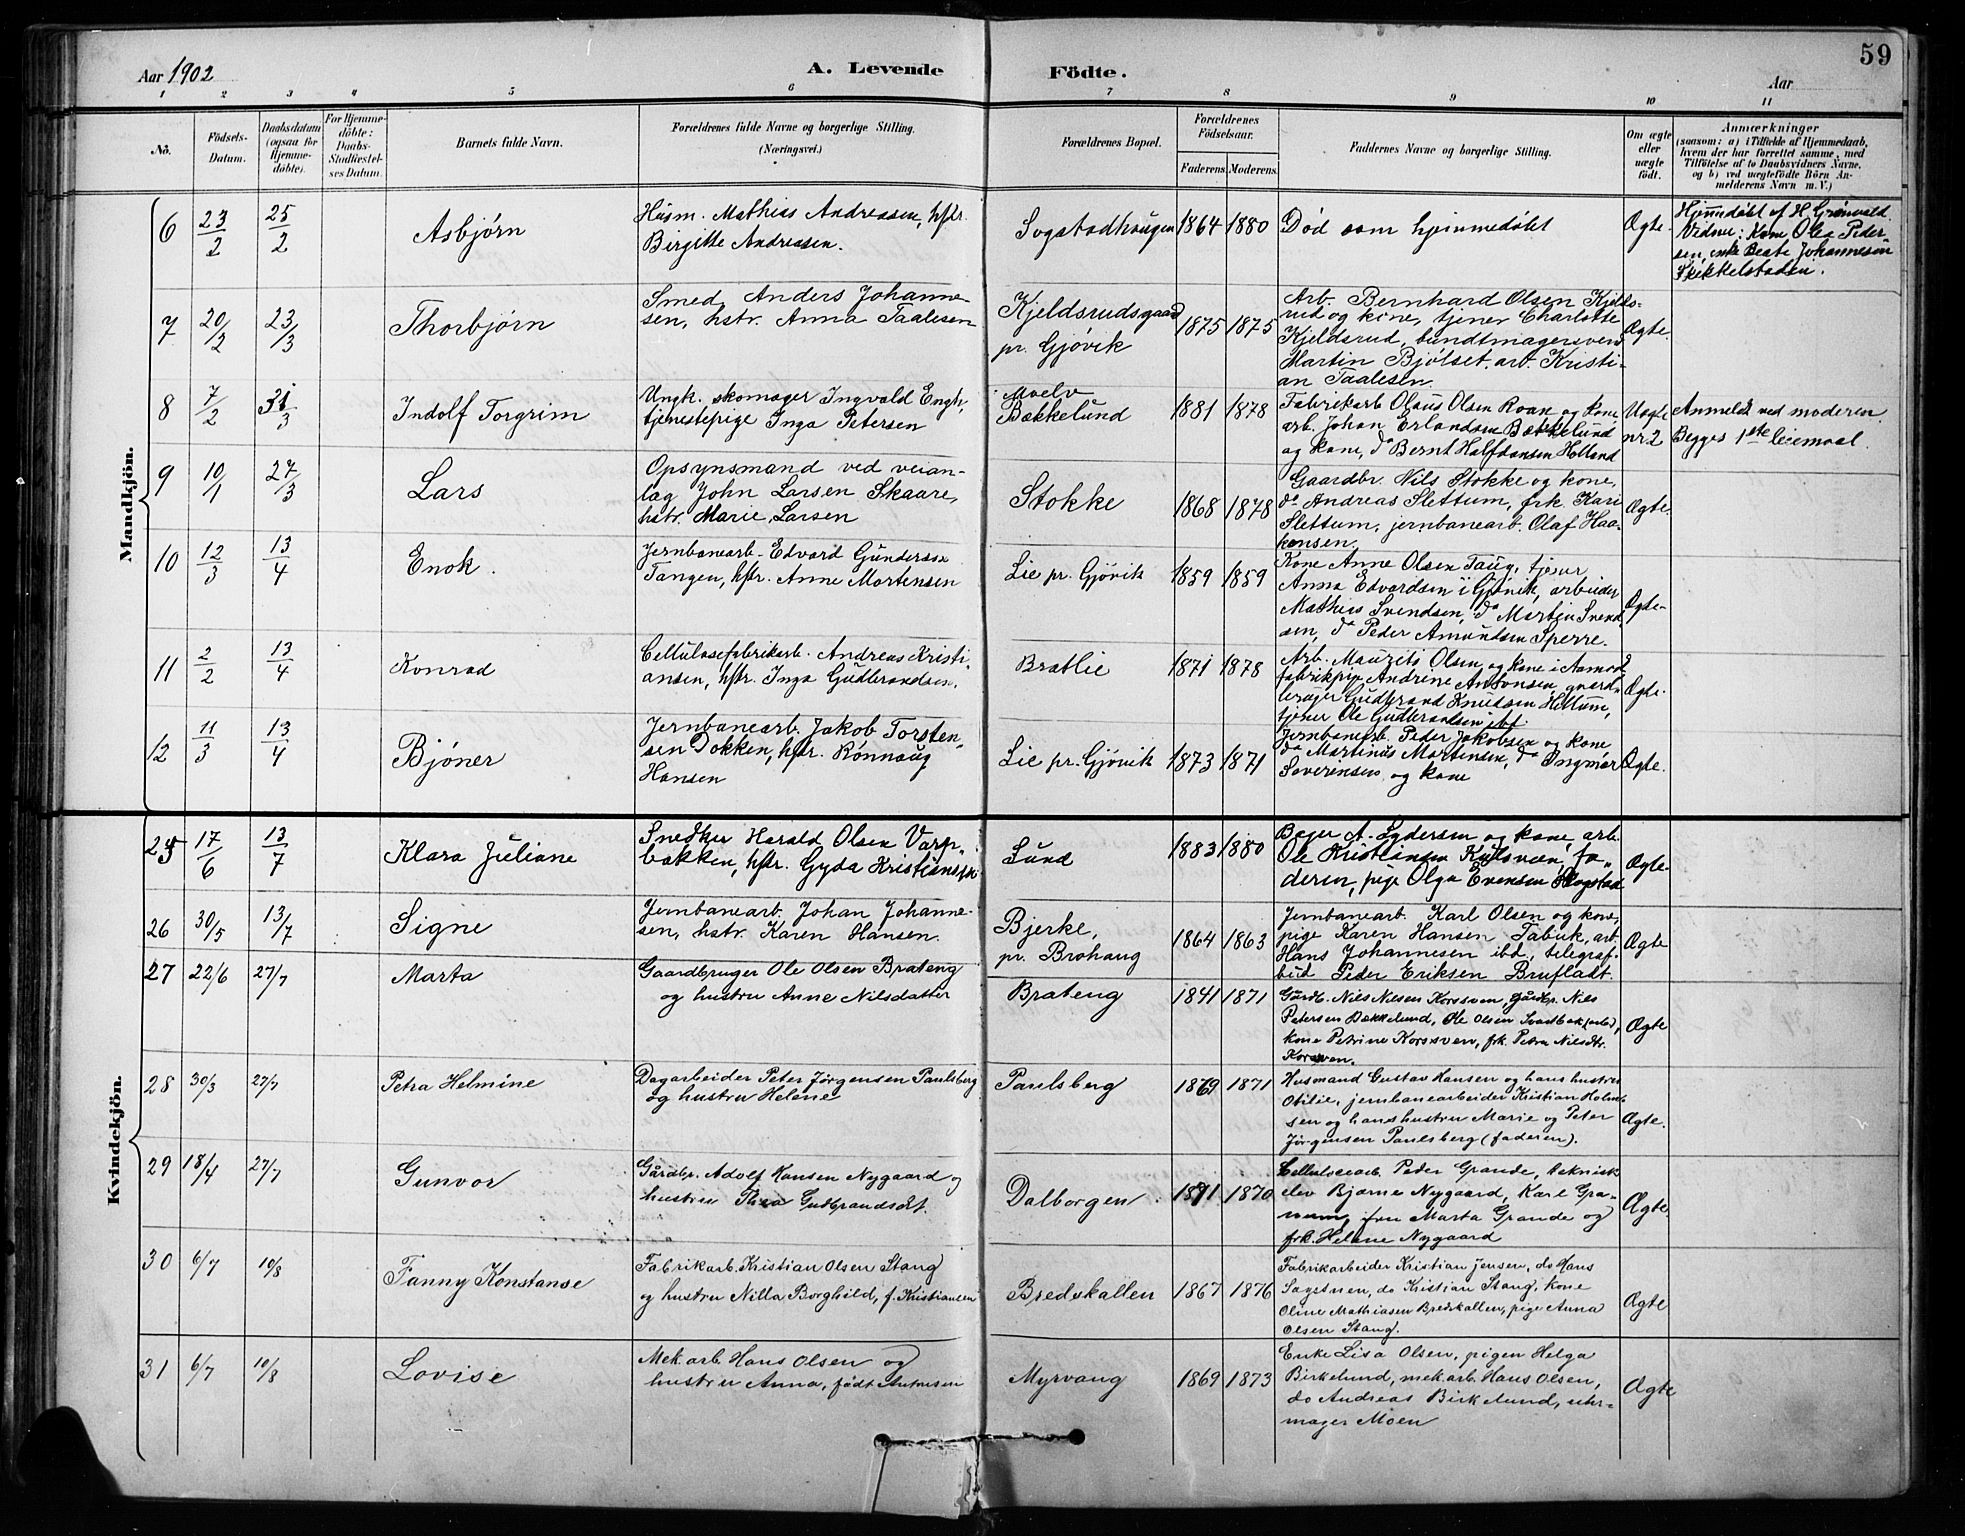 59
Aar 1902 A. Levende Födte. Aar
1 2 3 4 5 6 7 8 9 10 11
No. Födsels-Datum. Daabsdatum (ogsaa for Hjemme-döbte). For Hjemme-döbte: Daabs-Stadfæstel-ses Datum. Barnets fulde Navn. Forældrenes fulde Navne og borgerlige Stilling. (Næringsvei.) Forældrenes Bopæl. Forældrenes Födselsaar. Faderens Moderens. Faddernes Navne og borgerlige Stilling. Om ægte eller uægte født. Anmærkninger
(saasom: a) i Tilfælde af Hjemmedaab, hvem der har forrettet samme, med Tilföielse af to Daabsvidners Navne, og b) ved uægtefödte Börn An-melderens Navn m. V.)
Mandkjön.
6 23/2 25/2 Asbjørn
Husm. Mathias Andreassen, hstr.
Birgitte Andreasen.
Sogstadhaugen 1864 1880 Død som hjemmedøbt Ægte.
Hjemmedøbt af H. Grønvold.
Vidner: Kone Olea Peder
sen, enke Beate Johannesen
Skikkelstaden.
7 20/2 23/3 Thorbjørn
Smed Anders Johanne-
sen, hstr. Anna Taalesen
Kjeldsrudsgaard
pr. Gjøvik
1875 1875
Arb. Bernhard Olsen Kjelds-
rud og kone, tjener Charlotte
Kjeldsrud, bundtmagersvend
Martin Bjølset, arb. Kristi-
an Taalesen.
Ægte.
8 7/2 31/3 Indolf Torgrim
Ungk. skomager Ingvald Engh,
tjenestepige Inga Petersen
Moelv
Bækkelund
1881 1878
Fabrikarb Olaus Olsen Roan og kone
arb. Johan Erlandsen Bækkelund
og kone, do Bernt Halfdansen Holland
Uægte
nr. 2
Anmeldt ved moderen.
Begges 1ste leiemaal.
9 10/1 27/3 Lars
Opsynsmand ved veian-
læg John Larsen Skaare,
hstr. Marie Larsen
Stokke 1868 1878
Gaardbr. Nils Stokke og kone,
do Andreas Slettum, frk. Kari
Slettum, jernbanearb. Olaf Haa-
kensen.
Ægte.
10 12/3 13/4 Enok.
Jernbanearb. Edvard Gundersen
Tangen, hstr. Anne Mortensen
Lie pr. Gjøvik 1859 1859
Kone Anne Olsen Taug, tjener
Anna Edvardsen i Gjøvik, arbeider
Mathias Svendsen, do Martin Svend
sen, do Peder Amundsen Sperre.
Ægte-
11 2/2 13/4 Konrad
Cellulosefabrikarb. Andreas Kristi-
ansen, hstr. Inga Gudbrandsen.
Bratlie 1871 1878
Arb. Maurits Olsen og kone i Aamodt
fabrikpige Andrine Antonsen, gaard-
bruger Gudbrand Knudsen Hellum,
tjener Ole Gudbrandsen ibd.
Ægte.
12 11/3 13/4 Bjøner
Jernbanearb. Jakob Torsten-
sen Dokken, hstr. Rønnaug
Hansen
Lie pr. Gjøvik 1873 1871
Jernbanearb. Peder Jakobsen og kone
do Martinus Mortensen, do Ingmar
Severinsen og kone
Ægte.
Kvindekjön.
25 17/6 13/7 Klara Juliane
Snedker Harald Olsen Varp-
bakken, hstr. Gyda Kristiansen
Lund 1883 1880
Bøer A. Sydersen og kone, arb.
Ole Kristiansen Kulsveen, fa-
deren, pige Olga Evensen Hogstad
Ægte.
26 30/5 13/7 Signe
Jernbanearb. Johan Johanne-
sen, hstr. Karen Hansen.
Bjerke,
pr. Brohaug
1864 1863
Jernbanearb. Karl Olsen og kone,
pige Karen Hansen Tabuk, arb.
Hans Johannesen ibd, telegraf-
bud Peder Eriksen Brufladt.
Ægte
27 22/6 27/7 Marta
Gaardbruger Ole Olsen Brateng
og hustru Anne Nilsdatter
Brateng 1841 1871
Gårdb. Nils Nilsen Korssven, gårdbr. Nils
Petersen Bækkelund, Ole Olsen Svartbæk (arb),
kone Petrine Korssven, frk. Petra Nilsdtr.
Korssven.
Ægte
28 30/3 27/7 Petra Helmine
Dagarbeider Peter Jørgensen Paulsberg
og hustru Helene
Paulsberg 1869 1871
Husmand Gustav Hansen og hans hustru
Otilie, jernbanearbeider Kristian Holm-
sen og hans hustru Marie og Peter
Jørgensen Paulsberg (faderen).
Ægte.
29 18/4 27/7 Gunvor
Gårdbr. Adolf Hansen Nygaard og
hustru Thea Gudbrandsdt.
Dalborgen 1871 1870
Cellulosearb. Peder Grande, teknisk
elev Bjarne Nygaard, Karl Gra-
num, fru Marta Grande og
frk. Helene Nygaard
Ægte.
30 6/7 10/8 Fanny Konstanse
Fabrikarb. Kristian Olsen Stang
og hustru Nilla Borghild, f. Kristiansen
Bredskallen 1867 1876
Fabrikarbeider Kristian Jensen, do Hans
Sagstuen, do Kristian Stang, kone
Oline Mathiasen Bredskallen, pige Anna
Olsen Stang.
Ægte
31 6/7 10/8 Lovise
Mek. arb. Hans Olsen og
hustru Anna, født Antonsen
Myrvang 1869 1873
Enke Lisa Olsen, pigen Helga
Birkelund, mek. arb. Hans Olsen,
do Andreas Birkelund, uhr-
mager Moen
Ægte